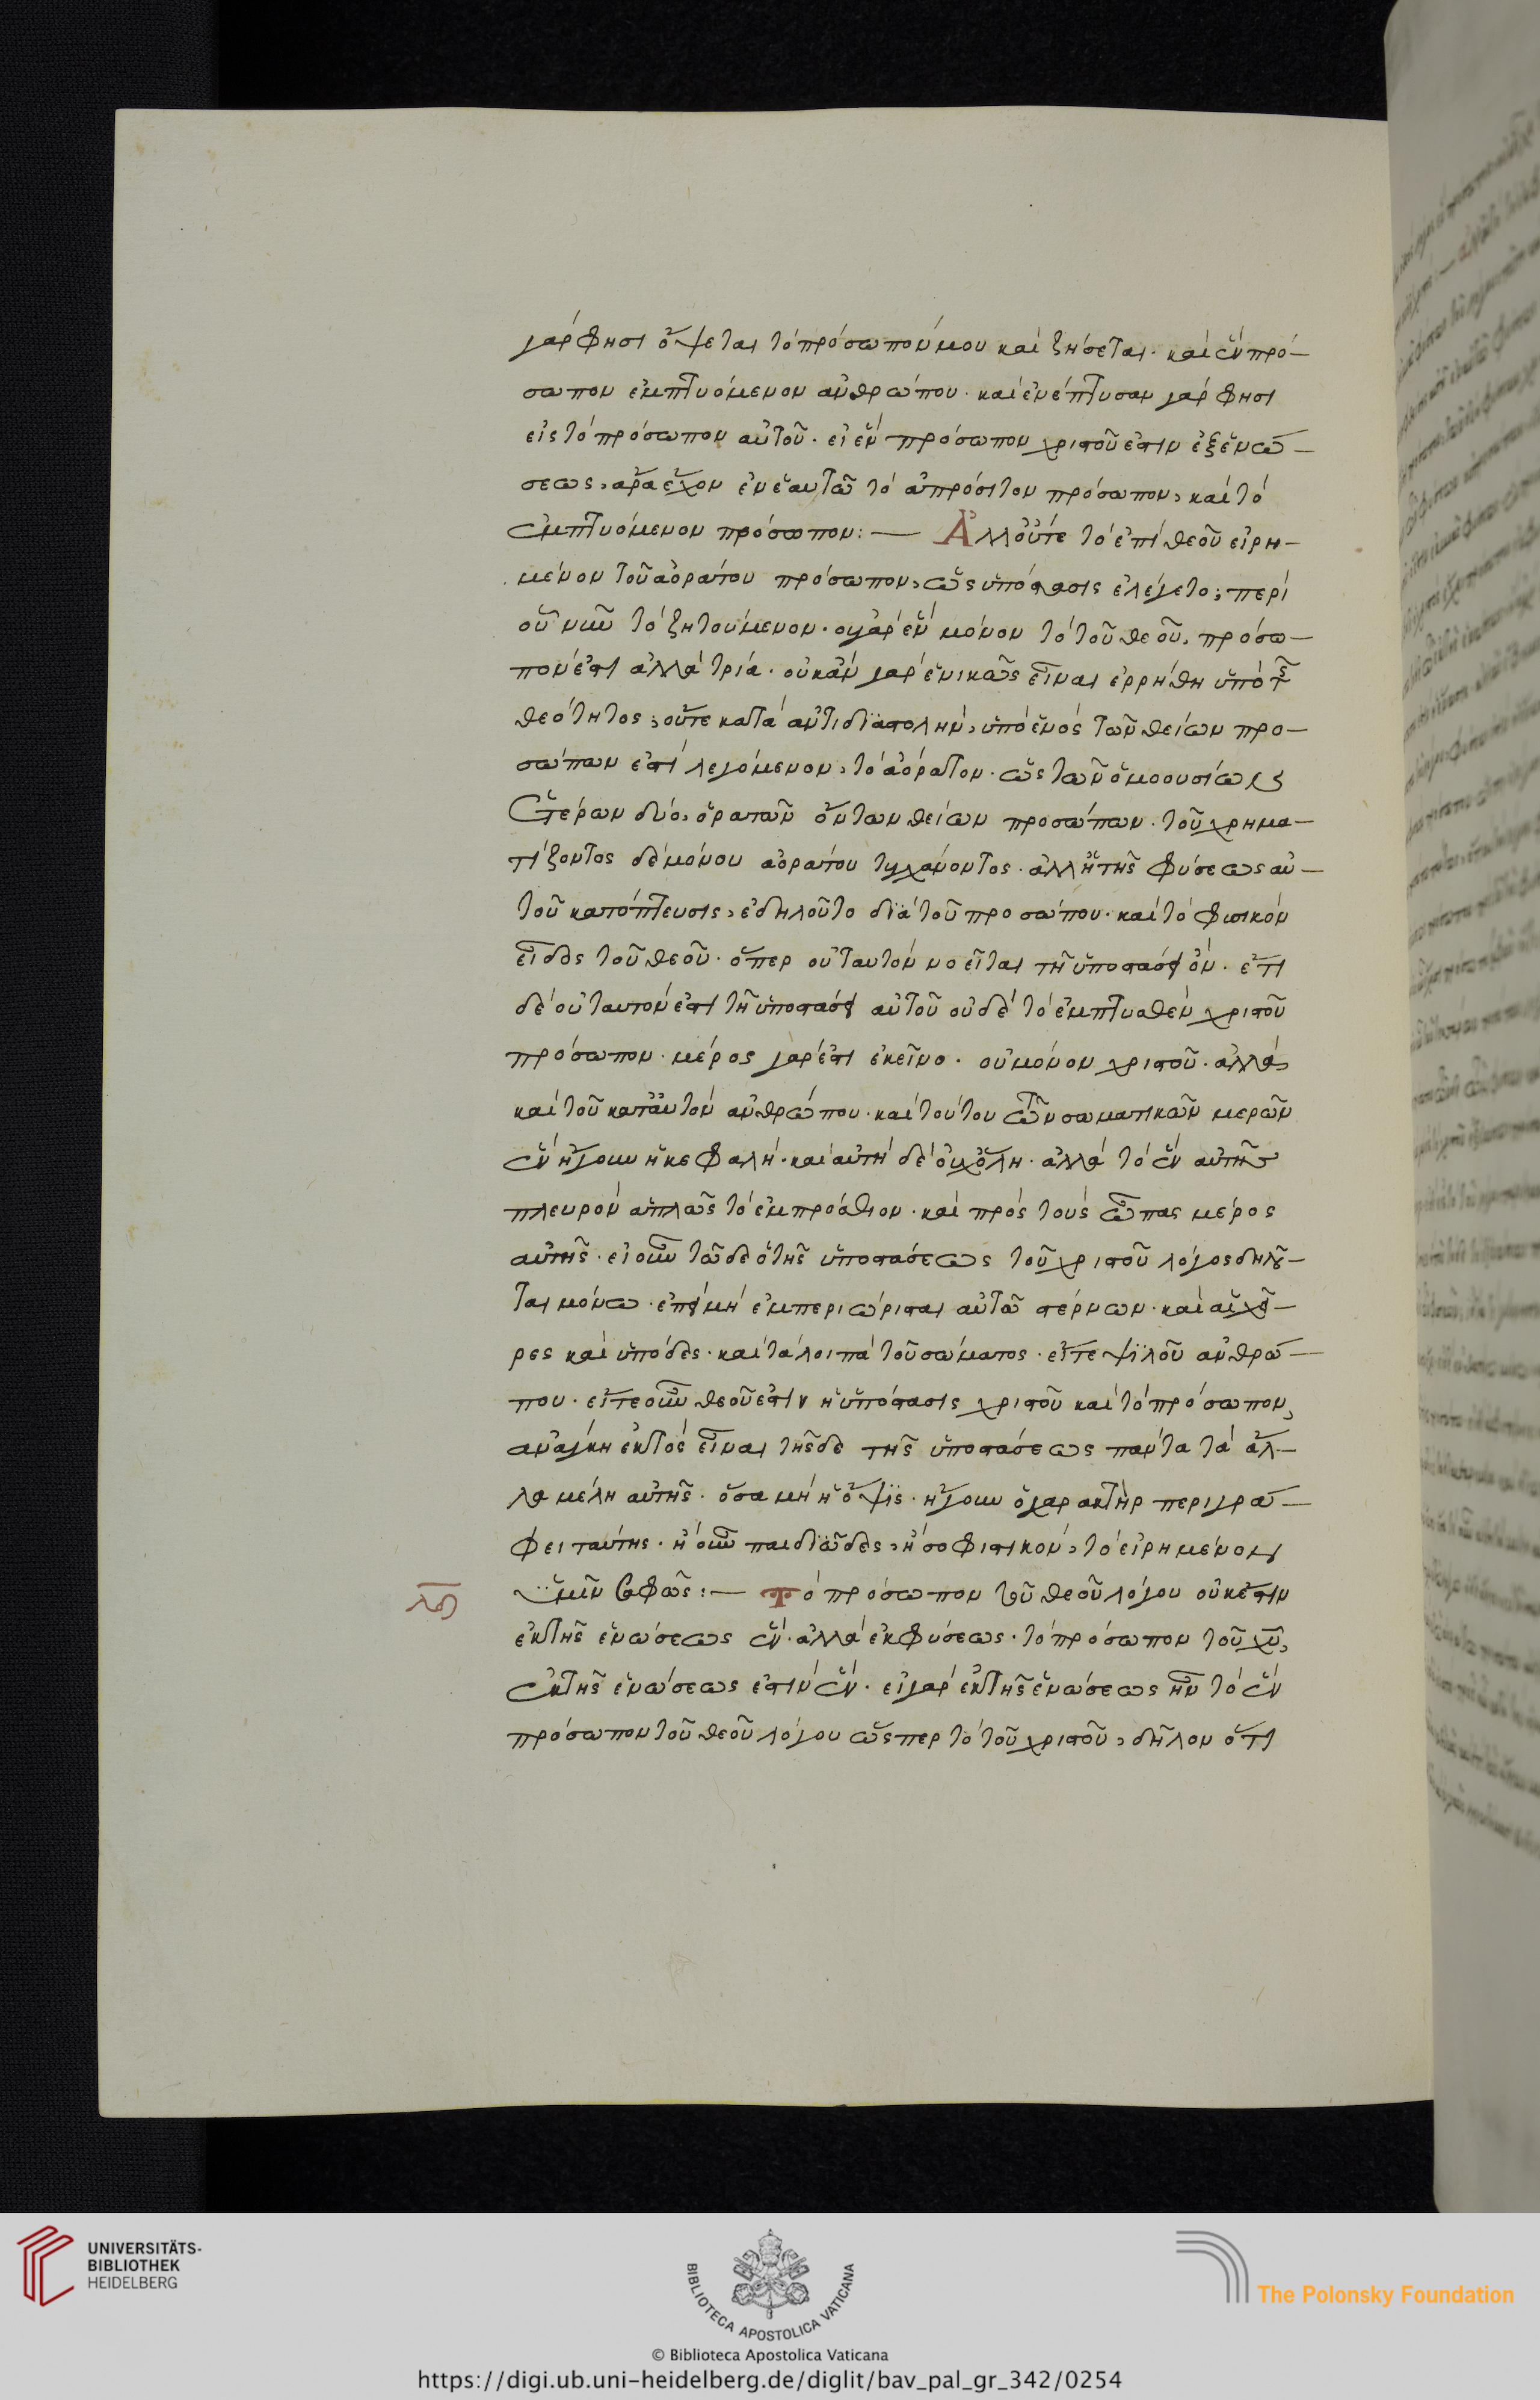 γὰρ φησὶ ὄψεται τὸ πρόσωπόν μου καὶ ζήσεται· καὶ ἓν πρό-
σωπον ἐμπτυόμενον ἀνθρώπου· καὶ ἐνέπτυσαν γὰρ φησὶ
εἰς τὸ πρόσωπον αὐτοῦ· εἰ ἓν πρόσωπον χριστοῦ ἐστιν ἐξ ἑνώ-
σεως, ἆρα ἔχον ἐν ἑαυτῶ τὸ ἀπρόσιτον πρόσωπον, καὶ τὸ
ἐμπτυόμενον πρόσωπον:— Ἀλλ' οὔτε τὸ ἐπὶ θεοῦ εἰρη-
μένον τοῦ ἀοράτου πρόσωπον, ὡς ὑπόστασις ἐλέγετο, περὶ
οὗ νῦν τὸ ζητούμενον· οὐ γὰρ ἓν μόνον τὸ τοῦ θεοῦ, πρόσω-
πον ἐστὶ ἀλλὰ τρία· οὐκ ἂν γὰρ ἑνικῶς εἶναι ἐρρήθη ὑπὸ τῆς
θεότητος, οὔτε κατὰ ἀντιδιαστολὴν, ὑπὸ ἑνὸς τῶν θείων προ-
σώπων ἐστὶ λεγόμενον, τὸ ἀόρατον· ὡς τῶν ὁμοουσίων
ἑτέρων δύο, ὁρατῶν ὄντων θείων προσώπων· τοῦ χρημα-
τίζοντος δὲ μόνου ἀοράτου τυγχάνοντος· ἀλλ' ἢ τῆς φύσεως αὐ-
τοῦ κατόπτευσις, ἐδηλοῦτο διὰ τοῦ προσώπου· καὶ τὸ φυσικὸν
εἶδος τοῦ θεοῦ· ὅπερ οὐ ταυτὸν νοεῖται τῆ ὑποστάσει ὄν· ἔτι
δὲ οὐ ταυτὸν ἐστὶ τῆ ὑποστάσει αὐτοῦ οὐδὲ τὸ ἐμπτυσθὲν χριστοῦ
πρόσωπον· μέρος γὰρ ἐστὶ ἐκεῖνο· οὐ μόνον χριστοῦ· ἀλλὰ
καὶ τοῦ κατ' αὐτὸν ἀνθρώπου· καὶ τούτου τῶν σωματικῶν μερῶν
ἓν ἤγουν ἡ κεφαλή· καὶ αὐτὴ δὲ οὐχ ὅλη· ἀλλὰ τὸ ἓν αὐτῆς
πλευρὸν ἁπλῶς τὸ ἐμπρόσθιον· καὶ πρὸς τοὺς ὦπας μέρος
αὐτῆς· εἰ οὖν τῶδε ὁ τῆς ὑποστάσεως τοῦ χριστοῦ λόγος δηλοῦ-
ται μόνω· ἐπεὶ μὴ ἐμπεριώρισται αὐτῶ στέρνων· καὶ αἱ χεῖ-
ρες καὶ οἱ πόδες· καὶ τὰ λοιπὰ τοῦ σώματος· εἴτε ψιλοῦ ἀνθρώ-
που· εἴτε οὖν θεοῦ ἐστιν ἡ ὑπόστασις χριστοῦ καὶ τὸ πρόσωπον,
ἀνάγκη ἐκτὸς εἶναι τῆσδε τῆς ὑποστάσεως πάντα τὰ ἄλ-
λα μέλη αὐτῆς· ὅσα μὴ ἡ ὄψις· ἤγουν ὁ χαρακτὴρ περιγρά-
φει ταύτης· ἢ οὖν παιδιῶδες, ἢ σοφιστικὸν, τὸ εἰρημένον
ὑμῖν σαφῶς:— Τὸ πρόσωπον τοῦ θεοῦ λόγου οὐκ ἔστιν
λδ
ἐκ τῆς ἑνώσεως ἓν· ἀλλὰ ἐκ φύσεως· τὸ πρόσωπον τοῦ χυ,
ἐκ τῆς ἑνώσεως ἐστὶν ἕν· εἰ γὰρ ἐκ τῆς ἑνώσεως ἦν τὸ ἓν
πρόσωπον τοῦ θεοῦ λόγου ὥσπερ τὸ τοῦ χριστοῦ, δῆλον ὅτι
UNIVERSITÄTS-
BIBLIOTHEK
HEIDELBERG
BIBLIOTECA APOSTOLICA VATICANA
The Polonsky Foundation
© Biblioteca Apostolica Vaticana
https://digi.ub.uni-heidelberg.de/diglit/bav_pal_gr_342/0254